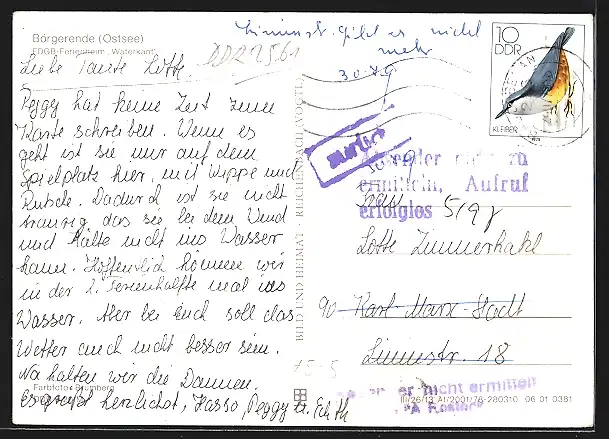 Börgerende (Ostsee)
FDGB-Ferienheim „Waterkant“
DDR 2561
Liebe Tante Lotte.
Peggy hat keine Zeit zum
Karte schreiben. Wenn es
geht ist sie nur auf dem
Spielplatz hier, mit Wippe und
Rutsche. Dadurch ist sie nicht
traurig das sie bei dem Wind
und Kälte nicht ins Wasser
kann. Hoffentlich können wir
in der 2. Ferienhälfte mal ins
Wasser. Aber bei Euch soll das
Wetter auch nicht besser sein.
Na halten wir die Daumen.
Es grüßt herzlichst, Hasso, Peggy u. Edith
Farbfoto: Bromberg
BILD UND HEIMAT · REICHENBACH (VOGTL)
gibt es nicht
mehr
10
DDR
KLEIBER
zurück
Absender nicht zu
ermitteln, Aufruf
erfolglos
5/9
Frau
Lotte Zimmerhakl
90 Karl-Marx-Stadt
Liminstr. 18
nicht ermittelt
III/26/13 A1/2001/76-280310 06 01 0381